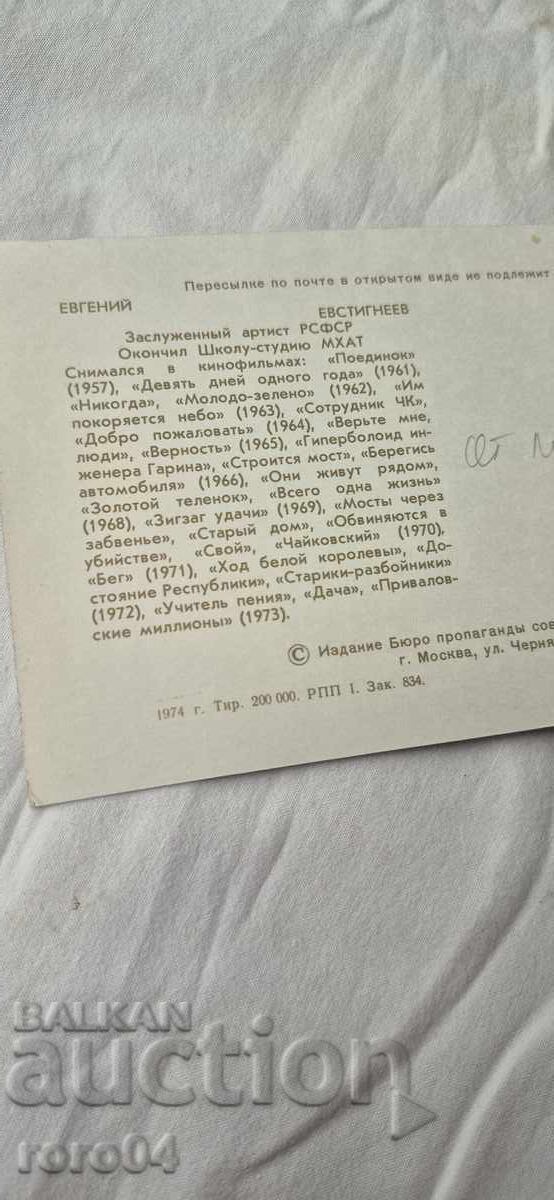 Пересылке по почте в открытом виде не подлежит
ЕВГЕНИЙ ЕВСТИГНЕЕВ
Заслуженный артист РСФСР
Окончил Школу-студию МХАТ
Снимался в кинофильмах: «Поединок»
(1957), «Девять дней одного года» (1961),
«Никогда», «Молодо-зелено» (1962), «Им
покоряется небо» (1963), «Сотрудник ЧК»,
«Добро пожаловать» (1964), «Верьте мне,
люди», «Верность» (1965), «Гиперболоид ин-
женера Гарина», «Строится мост», «Берегись
автомобиля» (1966), «Они живут рядом»,
«Золотой теленок», «Всего одна жизнь»
(1968), «Зигзаг удачи» (1969), «Мосты через
забвенье», «Старый дом», «Обвиняются в
убийстве», «Свой», «Чайковский» (1970),
«Бег» (1971), «Ход белой королевы», «До-
стояние Республики», «Старики-разбойники»
(1972), «Учитель пения», «Дача», «Привалов-
ские миллионы» (1973).
© Издание Бюро пропаганды сов
г. Москва, ул. Черня
1974 г. Тир. 200 000. РПП 1. Зак. 834.
BALKAN
auction
roro04